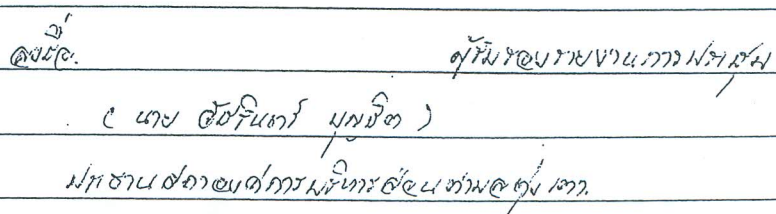 ลงชื่อ. ผู้รับรองรายงานการประชุม
( นาย บุญชิต )
ประธานสภาองค์การบริหารส่วนตำบล